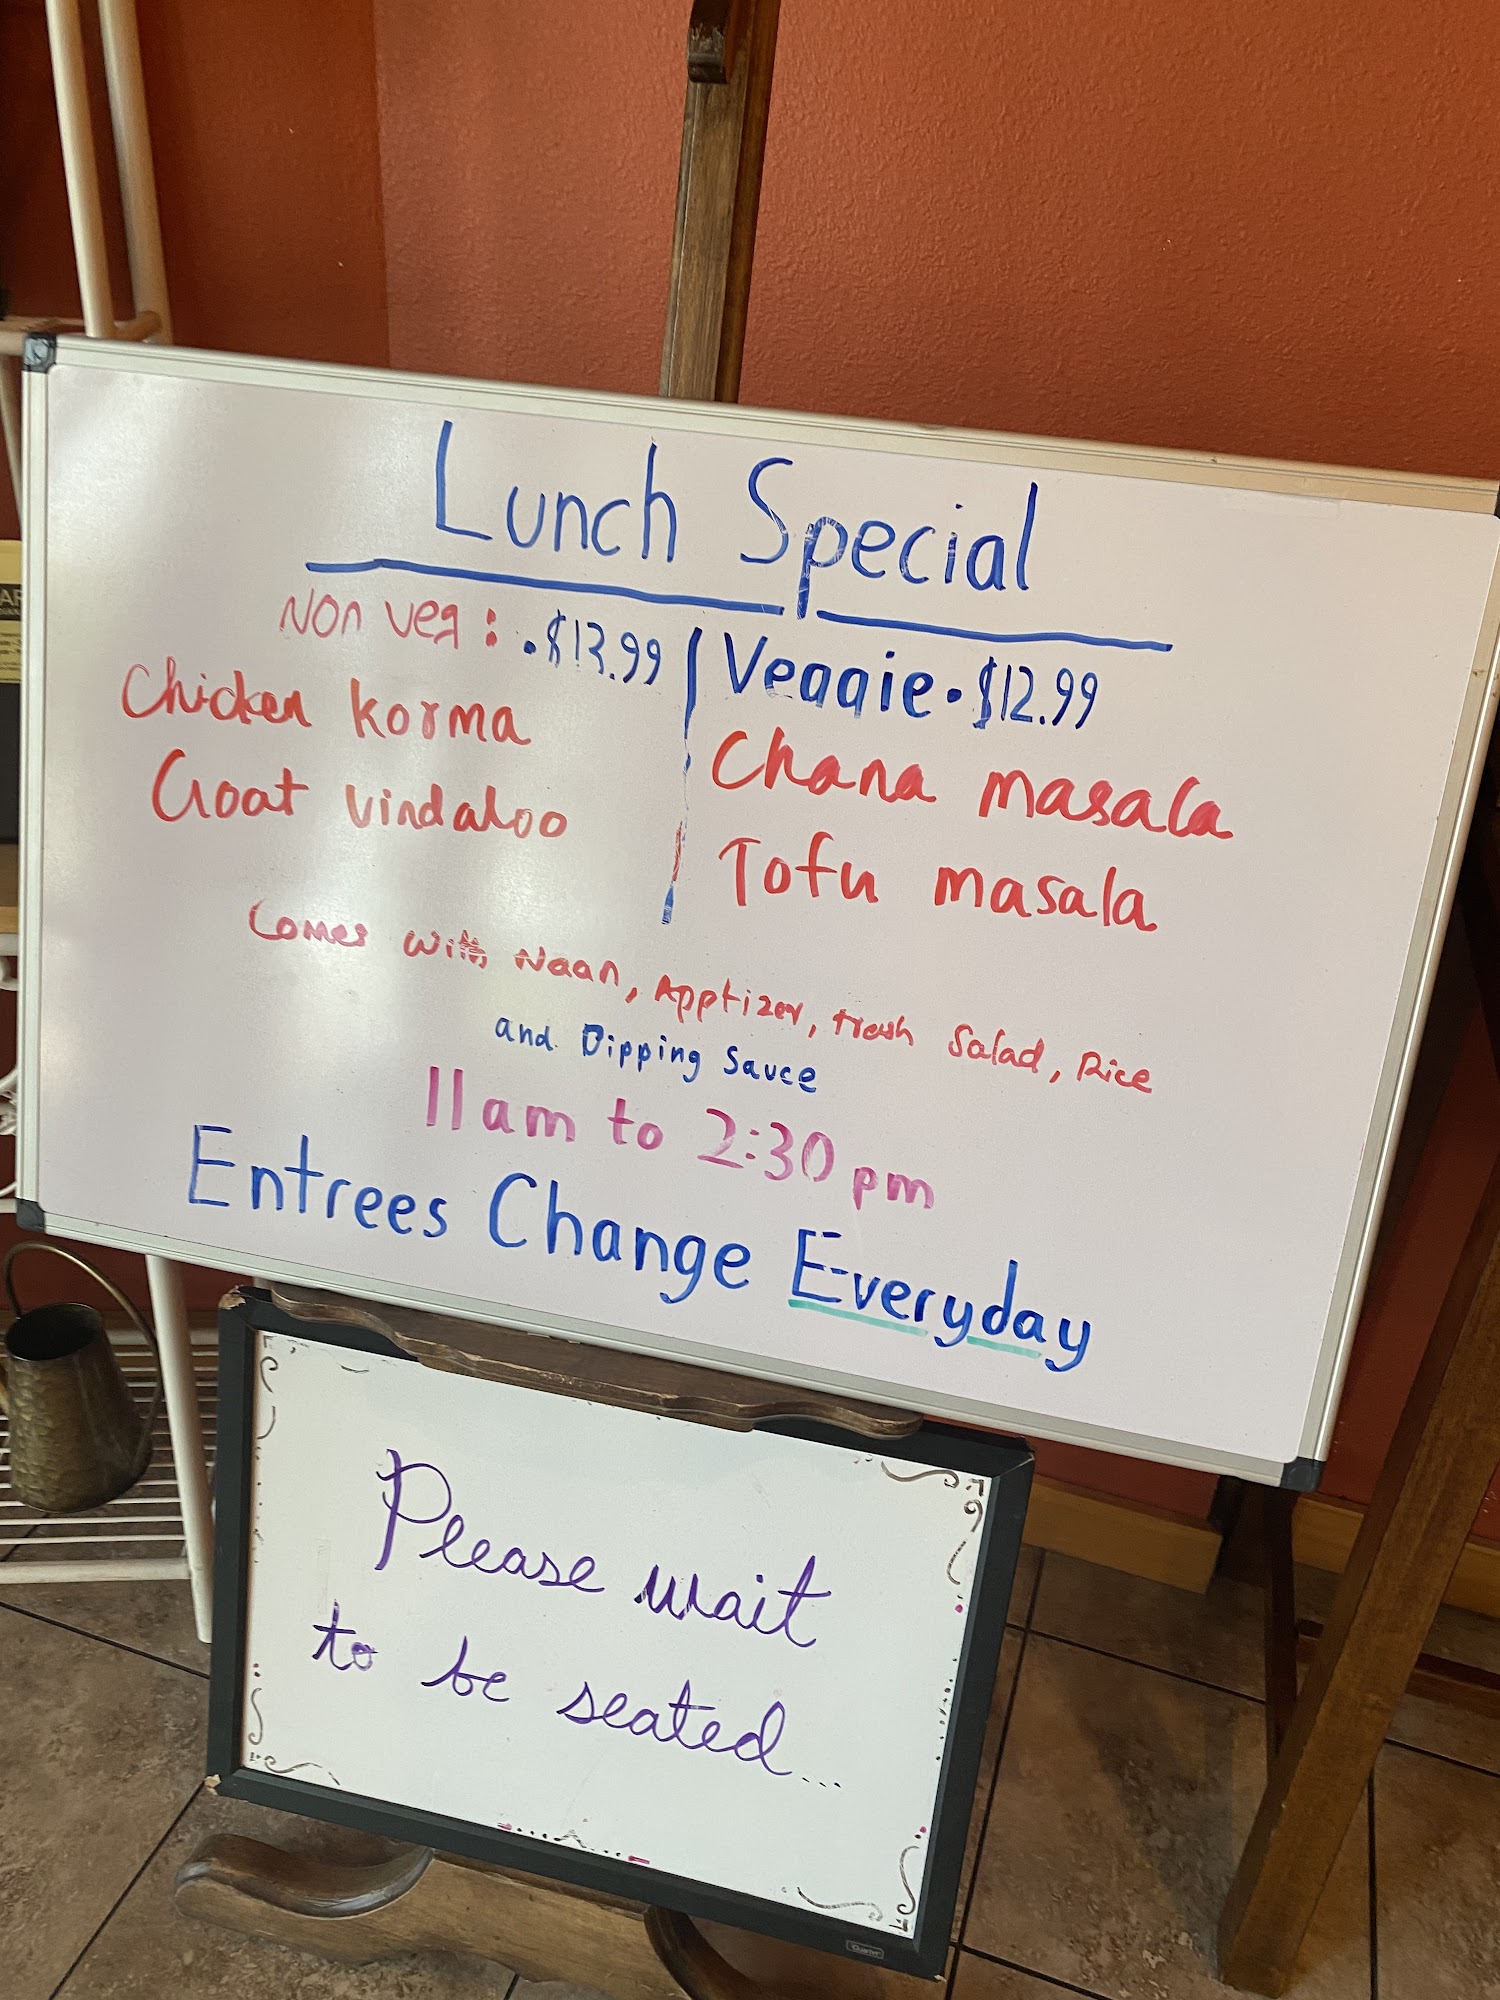 Lunch Special
Non Veg: .$13.99 | Veggie. $12.99
Chicken korma
Goat vindaloo
Chana masala
Tofu masala
Comes with Naan, Apptizer, fresh Salad, Rice
and Dipping Sauce
11am to 2:30pm
Entrees Change Everyday
Please wait
to be seated...
Quartet